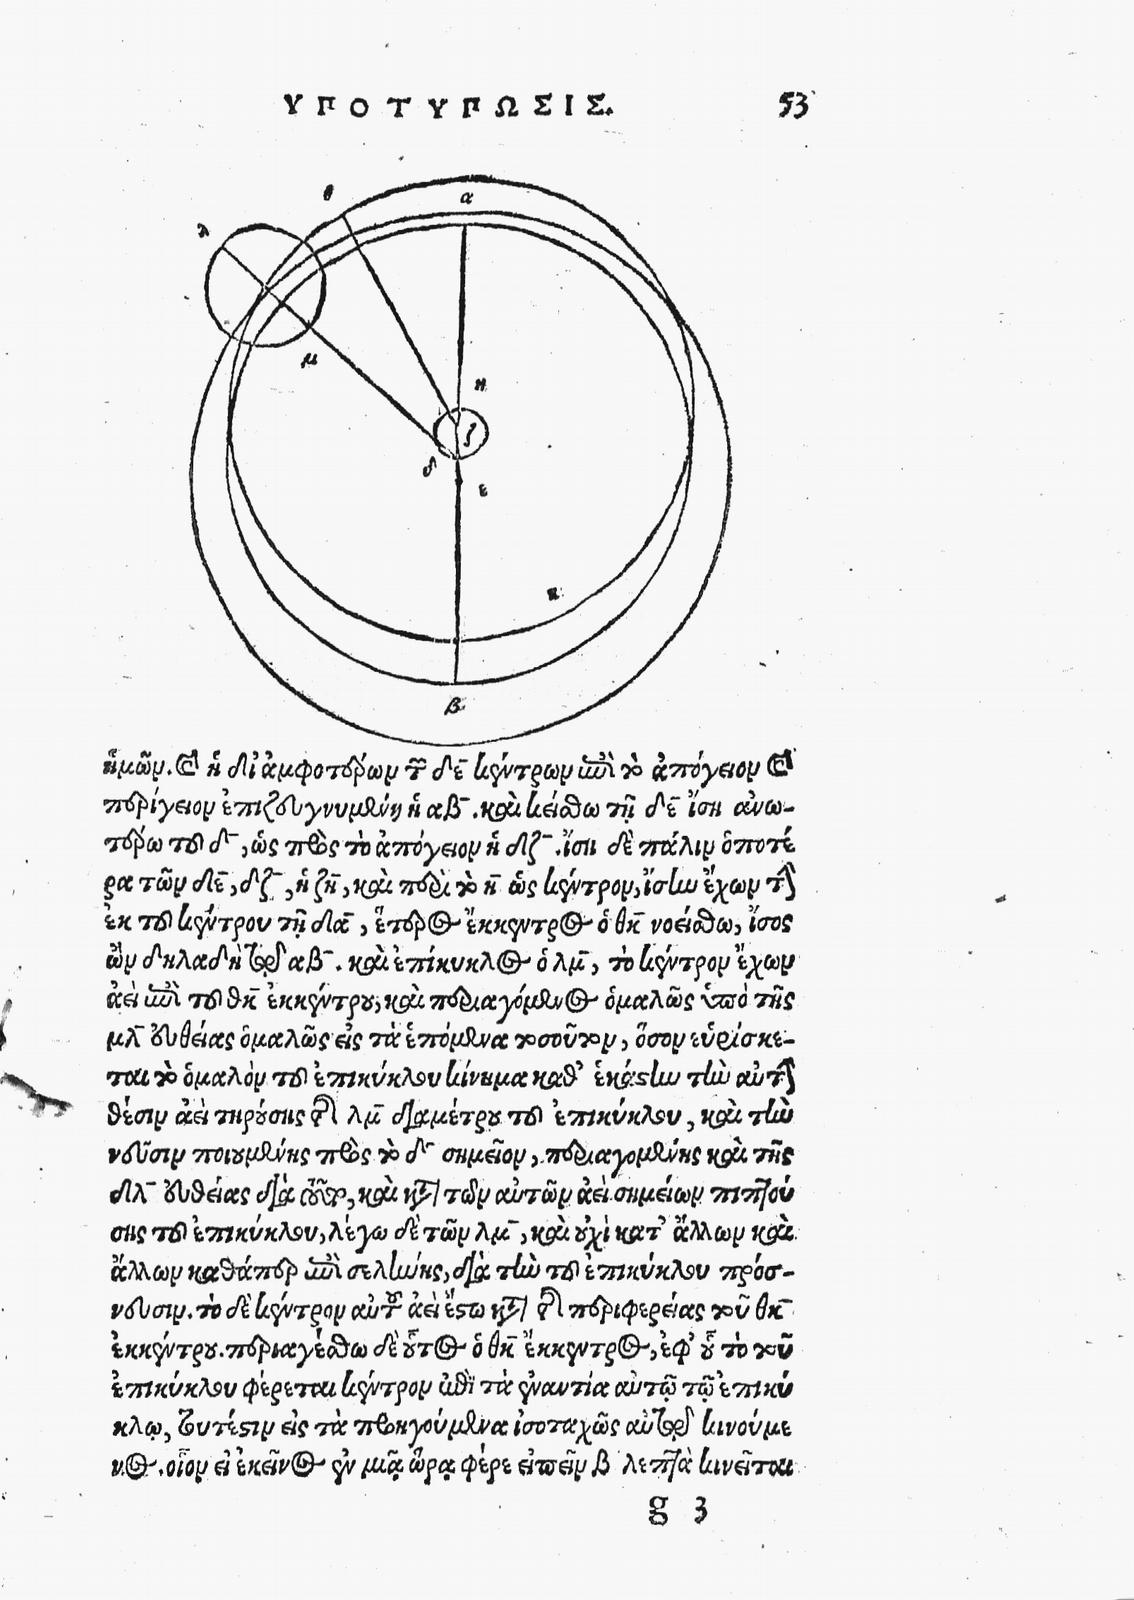 ΥΠΟΤΥΠΩΣΙΣ. 53
θ
α
λ
μ
η
ζ
δ
ε
κ
β
ἡμῶν. καὶ ἡ δι' ἀμφοτέρων τῶν δε κέντρων ἐπὶ τὸ ἀπόγειον καὶ
περίγειον ἐπιζευγνυμένη ἡ αβ. καὶ κείσθω τῇ δε ἴση ἀνω-
τέρω τοῦ δ, ὡς πρὸς τὸ ἀπόγειον ἡ δζ. ἴση δὲ πάλιν ὁποτέ
ρα τῶν δε, δζ, ἡ ζη, καὶ περὶ τὸ η ὡς κέντρον, ἴσην ἔχων τὴν
ἐκ τοῦ κέντρου τῇ δα, ἕτερος ἔκκεντρος ὁ θκ νοείσθω, ἴσος
ὢν δηλαδὴ τῷ αβ. καὶ ἐπίκυκλος ὁ λμ, τὸ κέντρον ἔχων
ἀεὶ ἐπὶ τοῦ θκ ἐκκέντρου, καὶ περιαγόμενος ὁμαλῶς ὑπὸ τῆς
μλ εὐθείας ὁμαλῶς εἰς τὰ ἑπόμενα τοσοῦτον, ὅσον εὑρίσκε-
ται τὸ ὁμαλὸν τοῦ ἐπικύκλου κίνημα καθ' ἑκάστην τὴν αὐτὴν
θέσιν ἀεὶ τηρούσης τῆς λμ διαμέτρου τοῦ ἐπικύκλου, καὶ τὴν
νεῦσιν ποιουμένης πρὸς τὸ δ σημεῖον, περιαγομένης καὶ τῆς
δλ εὐθείας διὰ καὶ κατὰ τῶν αὐτῶν ἀεὶ σημείων πιπτού
σης τοῦ ἐπικύκλου, λέγω δὲ τῶν λμ, καὶ οὐχὶ κατ' ἄλλων καὶ
ἄλλων καθάπερ ἐπὶ σελήνης, διὰ τὴν τοῦ ἐπικύκλου πρόσ-
νευσιν. τὸ δὲ κέντρον αὐτοῦ ἀεὶ ἔστω κατὰ τῆς περιφερείας τοῦ θκ
ἐκκέντρου. περιαγέσθω δὲ οὗτος ὁ θκ ἔκκεντρος, ἐφ' οὗ τὸ τοῦ
ἐπικύκλου φέρεται κέντρον ἐπὶ τὰ ἐναντία αὐτῷ τῷ ἐπικύ
κλῳ, τουτέστιν εἰς τὰ προηγούμενα ἰσοταχῶς αὐτῷ κινούμε
νος. οἷον εἰ ἐκεῖνος ἐν μιᾷ ὥρᾳ φέρε εἰπεῖν β λεπτὰ κινεῖται
g 3